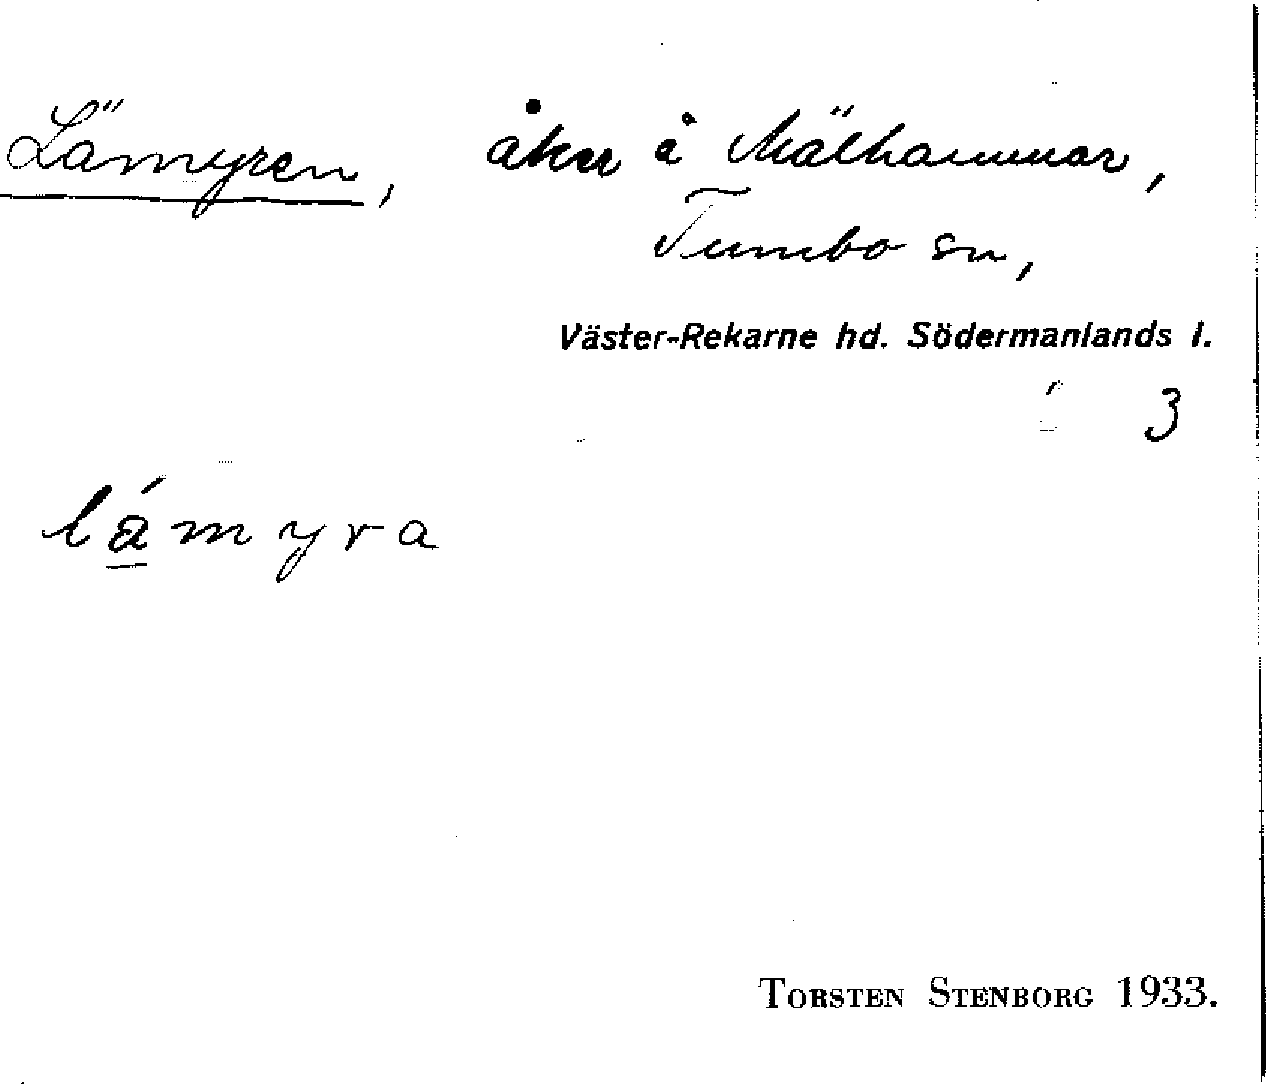 Lämyren, åker å Mälhammar,
Tumbo sn,
Väster-Rekarne hd. Södermanlands l.
3
lá̠myra
TORSTEN STENBORG 1933.